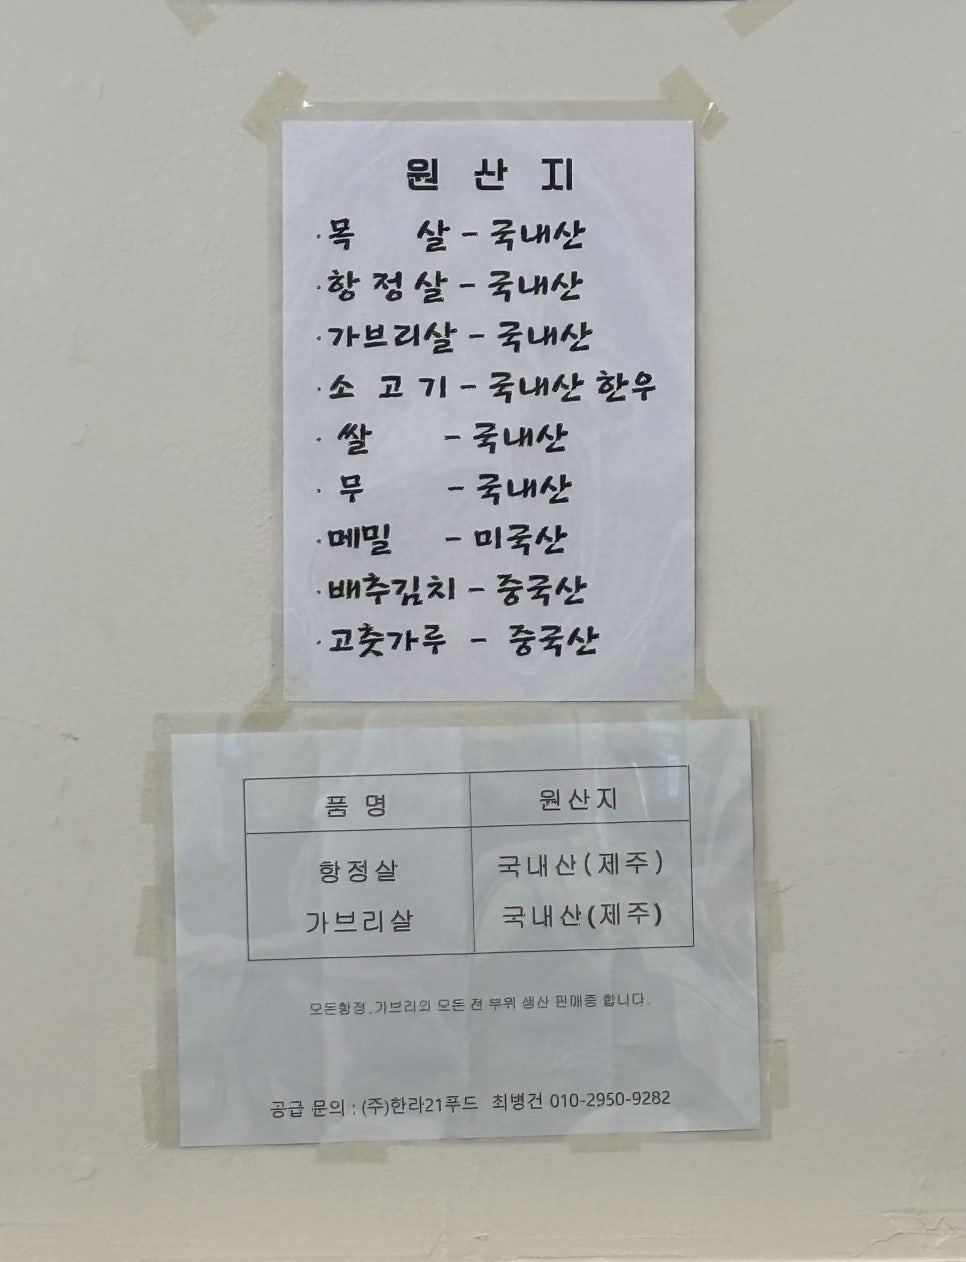 원 산 지
· 목 살 - 국내산
· 항 정 살 - 국내산
· 가브리살 - 국내산
· 소 고 기 - 국내산 한우
· 쌀 - 국내산
· 무 - 국내산
· 메밀 - 미국산
· 배추김치 - 중국산
· 고춧가루 - 중국산
품 명 원산지
항정살 국내산(제주)
가브리살 국내산(제주)
모돈항정.가브리외 모돈 전 부위 생산 판매중 합니다.
공급 문의 : (주)한라21푸드 최병건 010-2950-9282